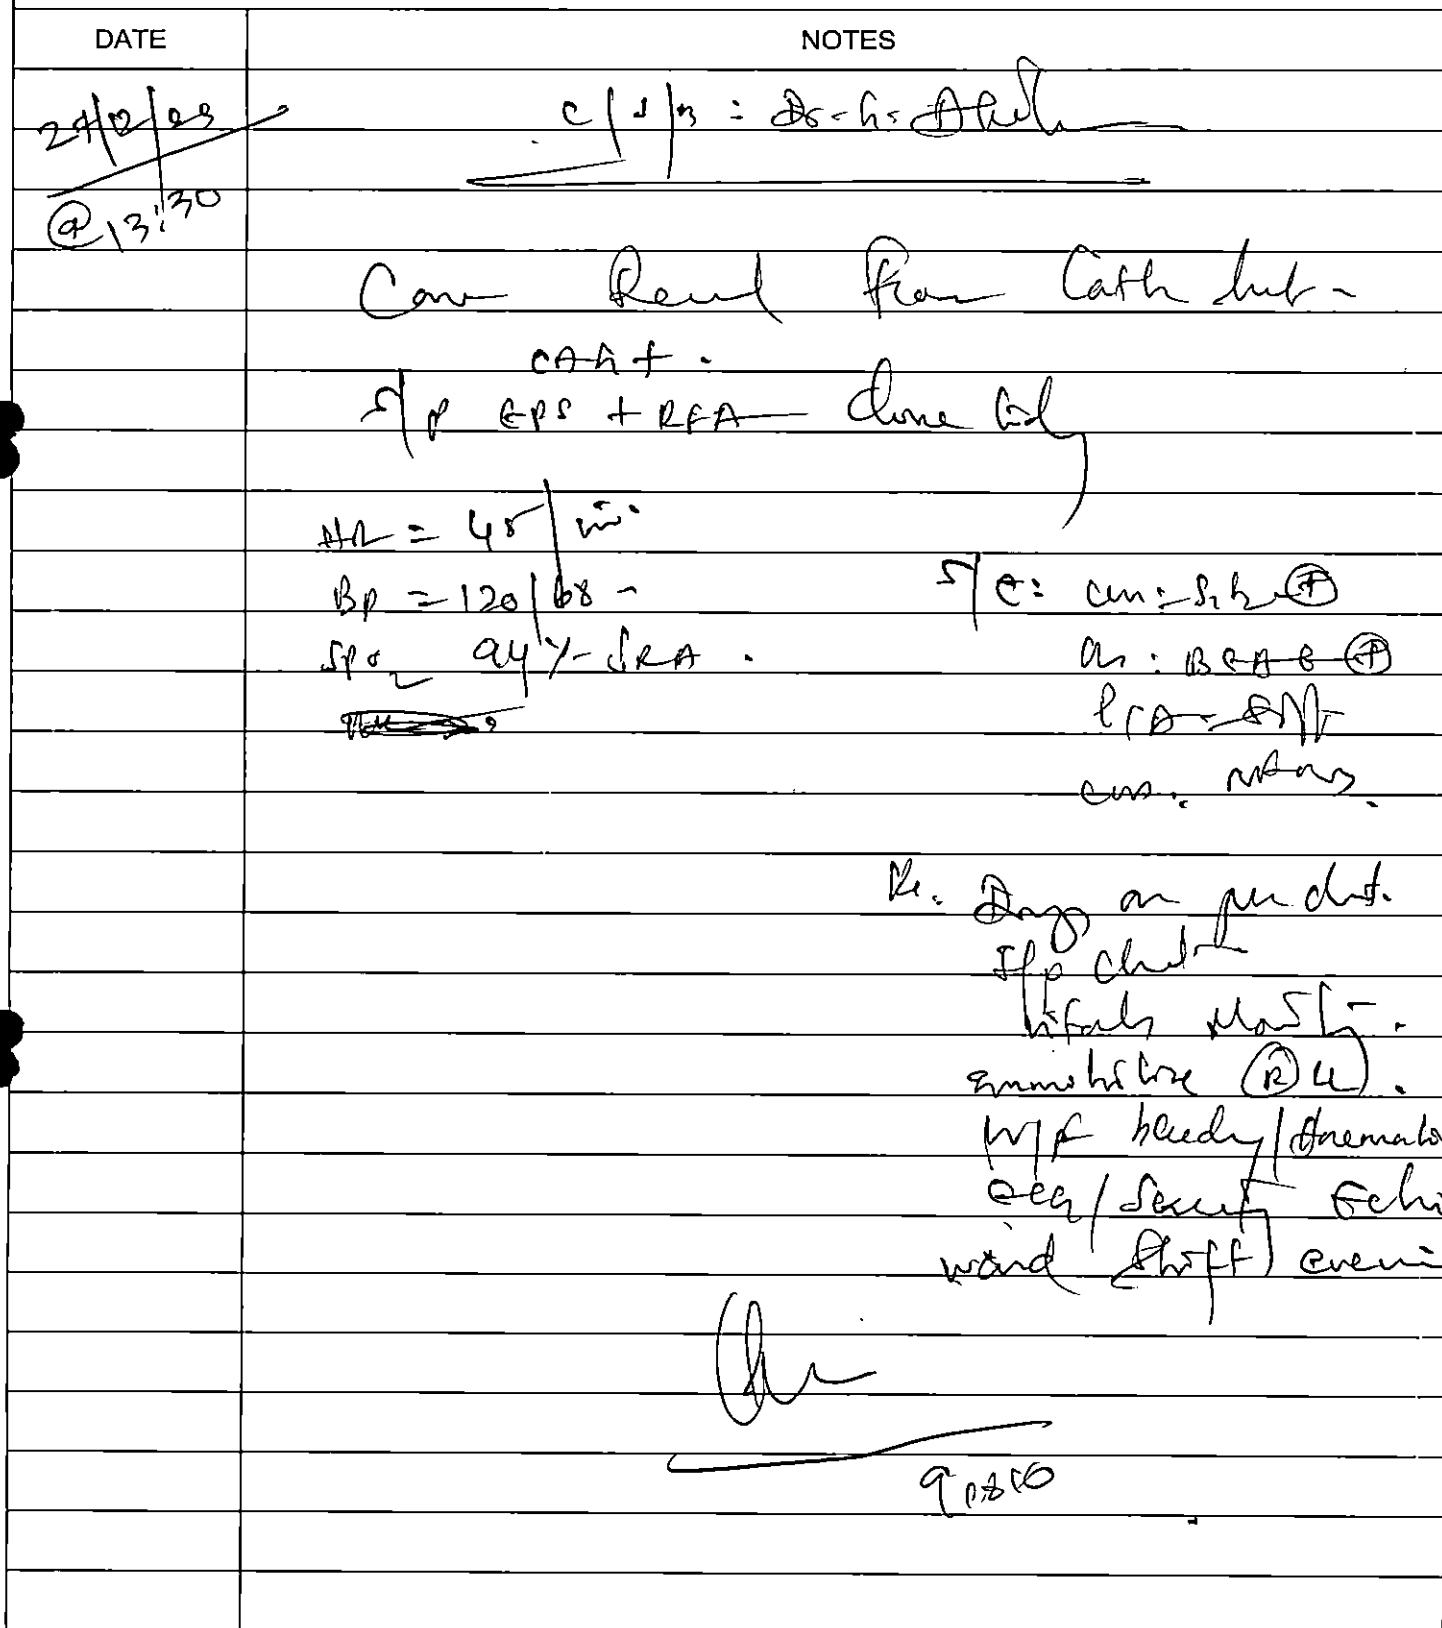 DATE NOTES
@ 13:30
Case Received from Cath lab -
CAG +
S/P EPS + RFA done today
HR = 45/min.
BP = 120/68 -
SPO2 94%
S/E: CVS: S1S2 +
RS: BEAE +
P/A: Soft
CNS: NFND.
Rx. Drugs as per chart.
I/O chart
Vitals Monitoring.
immobilise (R) LL.
W/F bleeding/Haemato
ECG/Screening Echo
ward shift eveni